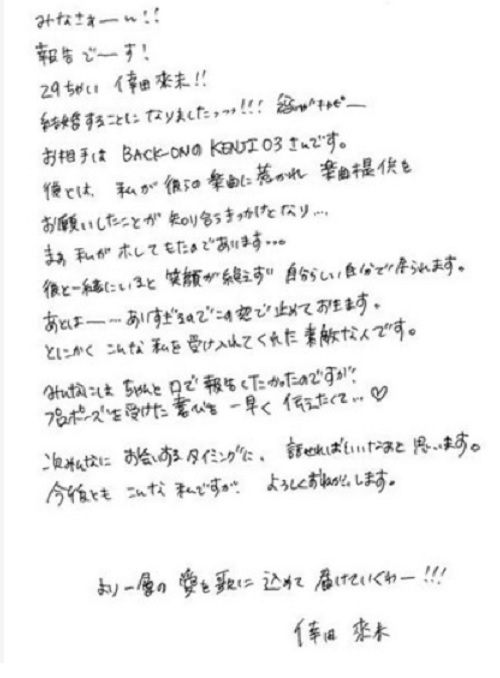 みなさぁーん!!
報告でーす!
29ちがい 倖田來未!!
結婚することになりましたっっっ!!!
お相手は BACK-ONの KENJI03さんです。
彼とは、私が彼らの楽曲に惹かれ 楽曲提供を
お願いしたことが 知り合うきっかけとなり...
まぁ 私がホレてもたのであります...。
彼と一緒にいると 笑顔が絶えず 自分らしい自分で居られます。
あとはー...ありすぎるのでこの窓で止めておきます。
とにかく こんな私を受け入れてくれた 素敵な人です。
みんなには ちゃんと口で報告したかったのですが!
プロポーズを受けた喜びを 一早く 伝えたくて...♡
次みんなに お会いするタイミングに、話せればいいなぁと思います。
今後とも こんな私ですが よろしくおねがいします。
より一層の 愛を歌に込めて 届けていくわー!!!
倖田 來未